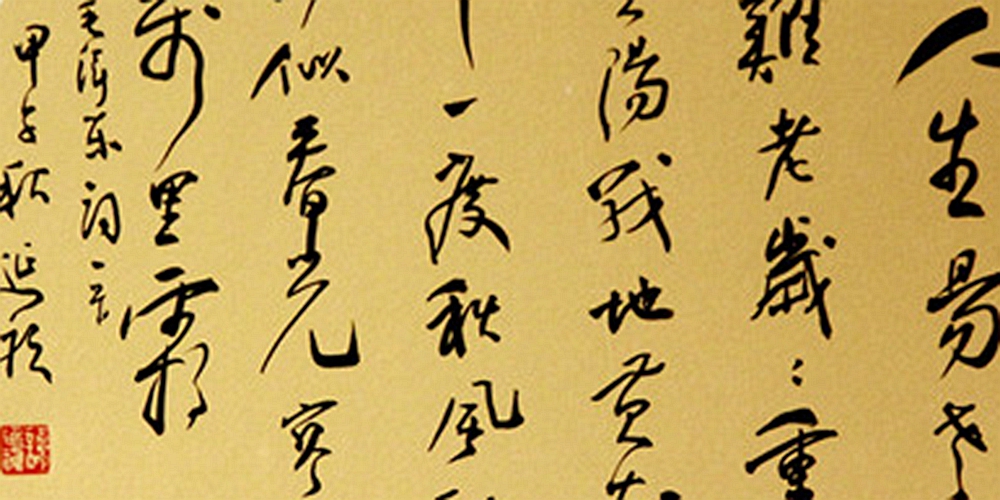 人生易老
難老歲々重
陽戰地黃花
一度秋風
似春光寥
萬里霜
毛澤東詞一首
甲午秋延